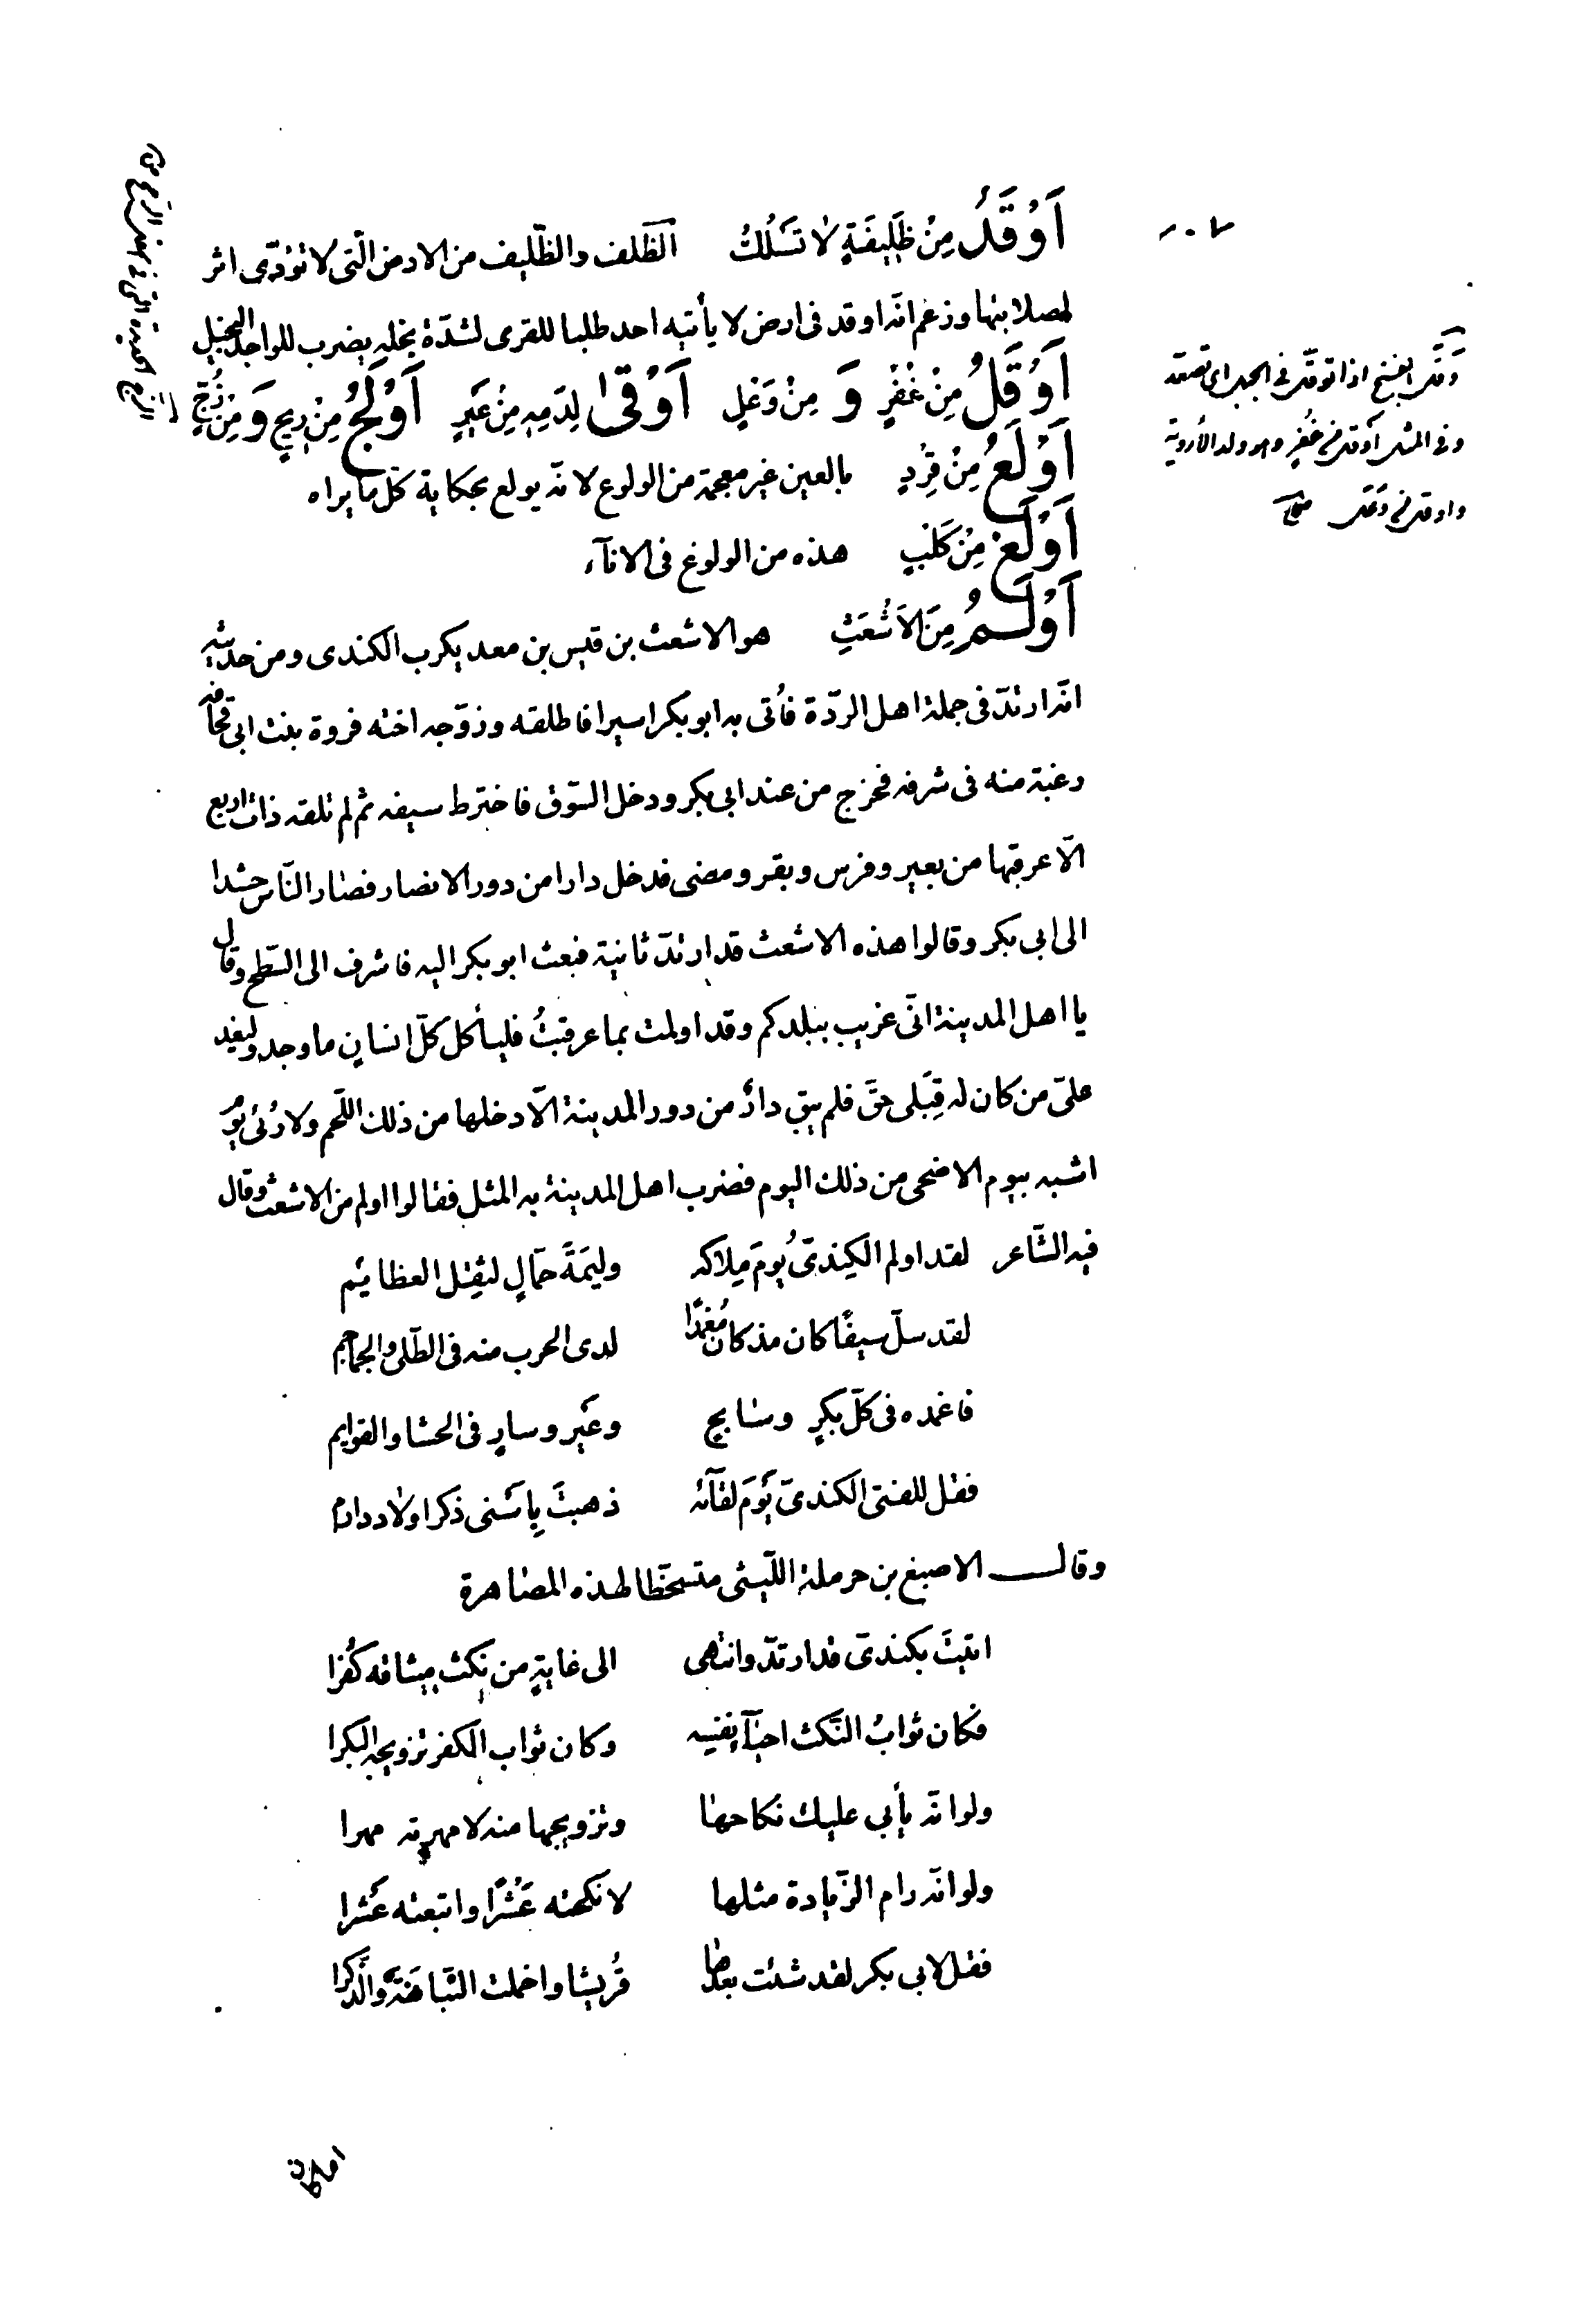 ٧٠٢
اَوْقَدُ مِنْ ظَلِيفَةٍ لَا تَسْلُكُ الظّلف والظّليف من الارض الّتى لا تؤدّى اثر
لصلابتها وزعم انّه اوقد فى ارض لا يأتيه احد طلبا للقرى لشدّة بخله يضرب للواجد البخيل
اَوْقَلُ مِنْ غُفْرٍ وَ مِنْ وَعْلٍ اَوْقىٰ لِدَمِهِ مِنْ عَيْرٍ اَوْلَجُ مِنْ رِيحٍ وَ مِنْ زُجٍّ
اَوْلَعُ مِنْ قِرْدٍ بالعين غير معجمة من الولوع لانّه يولع بحكاية كلّ ما يراه
اَوْلَغُ مِنْ كَلْبٍ هذه من الولوغ فى الاناء
اَوْلَمُ مِنَ الاَشْعَثِ هو الاشعث بن قيس بن معد يكرب الكندى ومن حديثه
انّه ارتدّ فى جملة اهل الردّة فأتى به ابو بكر اسيرا فاطلقه وزوّجه اخته فروة بنت ابى قحافه
رغبة منه فى شرفه فخرج من عند ابى بكر ودخل السّوق فاخترط سيفه ثم لم تلقه ذات اربع
الّا عرقبها من بعير وفرس وبقر ومضى فدخل دارا من دور الانصار فصار النّاس حشدا
الى ابى بكر وقالوا هذه الاشعث قد ارتدّ ثانية فبعث ابو بكر اليه فاشرف الى السّطح وقال
يا اهل المدينة انّى غريب ببلدكم وقد اولمت بما عرقبتُ فليأكل كلّ انسان ما وجد وليغد
علىّ من كان له قِبَلى حقّ فلم يبق دارٌ من دور المدينة الّا دخلها من ذلك اللّحم ولا رُئى يوم
اشبه بيوم الاضحى من ذلك اليوم فضرب اهل المدينة به المثل فقالوا اولم من الاشعث وقال
فيه الشّاعر لقد اولم الكِندىّ يومَ مِلاكه وليمَةَ حمّالٍ لثِقل العظائم
لقد سلّ سيفًا كان مذ كان مُغمدًا لدى الحرب منه فى الطّلى والجماجم
فاغمده فى كلّ بكرٍ وسٰابحٍ وعَيرٍ وسارٍ فى الحشا والقوايم
فقل للفتى الكندىّ يَوْمَ لقآئه ذهبتَ بِاَسْنى ذكر اولاد دارم
وقال الاصبغ بن حرملة اللّيثى متسخّطا لهذه المصٰاهرة
اتيتَ بكندىّ قد ارتدّ وانتهى الى غايةٍ من نكث ميثاقه كُفرا
فكان ثوابُ النَّكث احيٰآءِ نفسِه وكان ثواب الكفر تزويجه البكرا
ولو انّه يأبى عليك نكاحهٰا وتزويجها منه لامهرته مهرا
ولو انّه رام الزّيادة مثلها لانكحته عَشْرًا واتبعته عَشرا
فقل لابى بكر لقد شنت بعدها قُريشا واخملت النّباهَةَ والذّكرا
وَقَل بالفتح اذا توقّل فى الجبل اى تصعّد
وفى المثل اَوقل من غُفْرٍ وهو ولد الأروية
واوقل من وَعْل